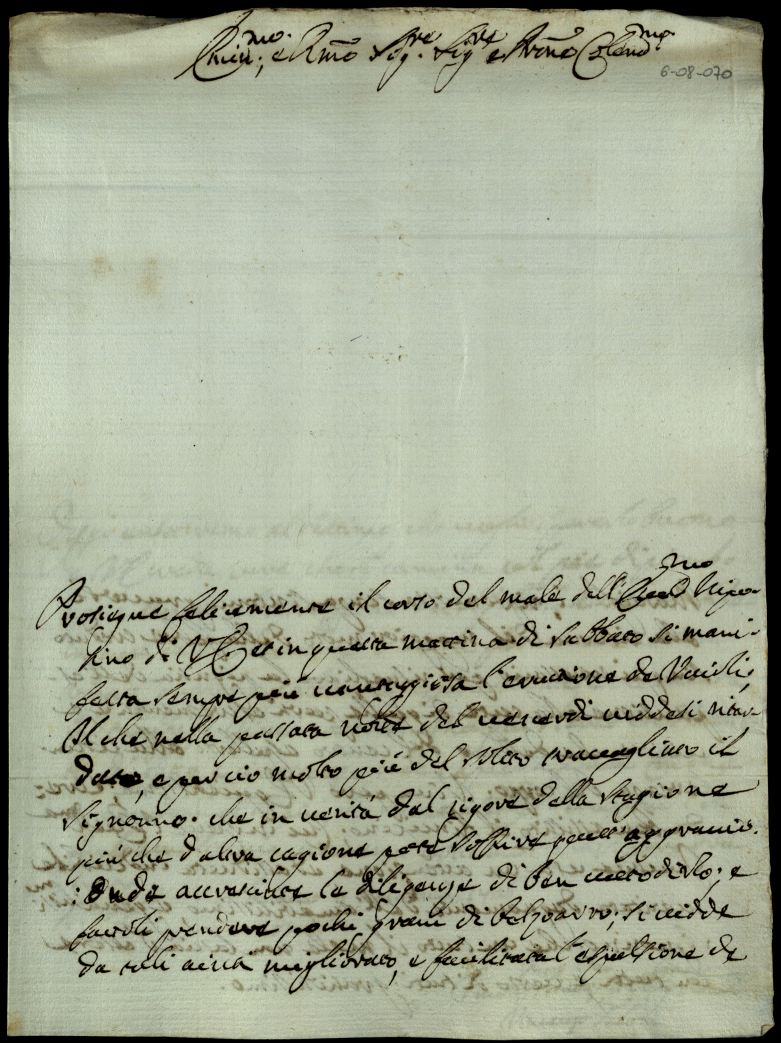 Ill.mo, e R.mo Sig.re Sig.re e Pron̄e Colend.mo
6-08-070
Prosiegue felicemente il corso del male dell' Nipo-
tino di et in questa matina di sabbato si mani-
festa sempre più vantaggiosa l'eruzione de Vaioli,
Il che nella passata notte del venerdì viddesi ritar-
dato, e perciò molto più del solito travagliato il
Signorino. che in verità dal rigore della stagione
più che d'altra cagione potè soffrire
: Onde accresciute le diligenze di ben custodirlo; e
fattoli prendere pochi grani di belzoarro, si vidde
da tali aiuti migliorato, e facilitata l'espulsione de